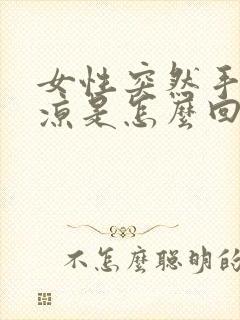 女性突然手
凉是怎麼回
不怎麼聰明的